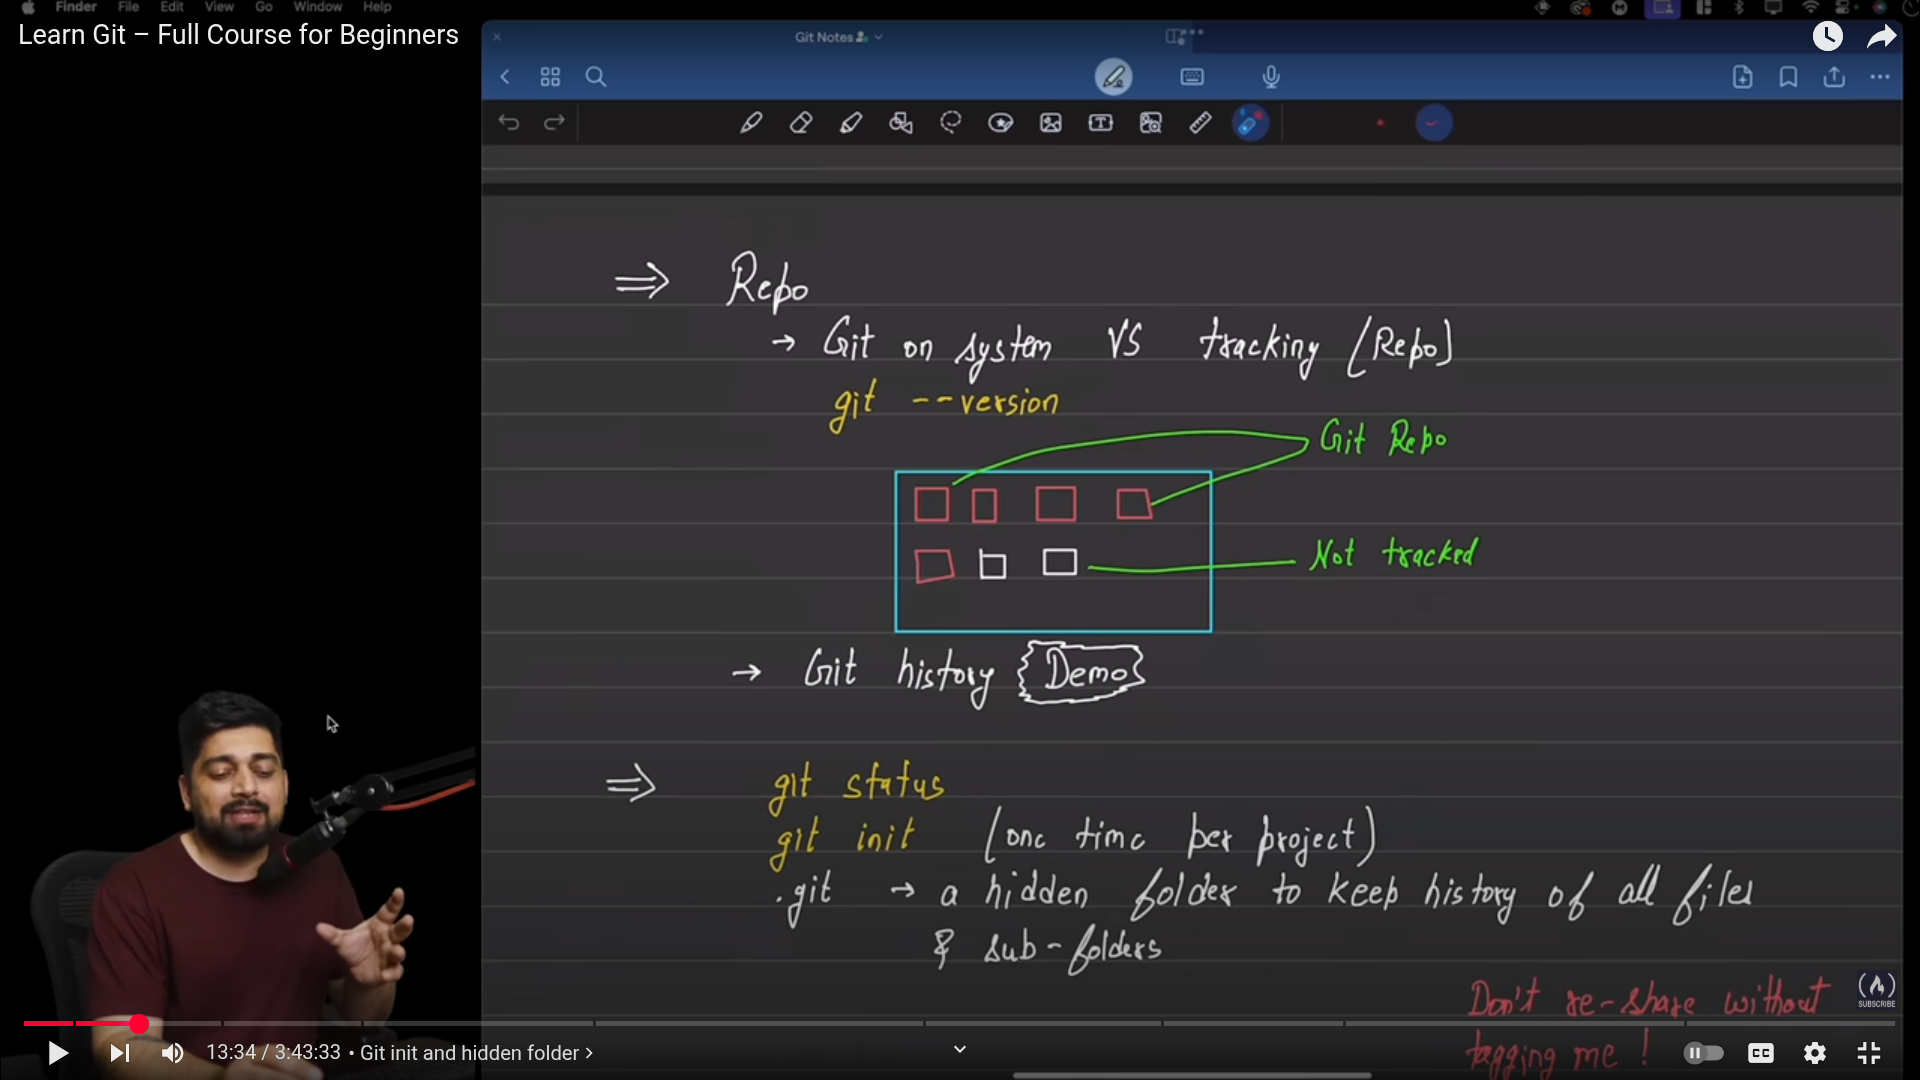 Finder File Edit View Go Window Help
Learn Git – Full Course for Beginners
Git Notes
⇒ Repo
→ Git on system VS tracking (Repo)
git --version
Git Repo
Not tracked
→ Git history {Demo}
⇒ git status
git init (one time per project)
.git → a hidden folder to keep history of all files
& sub-folders
Don't re-share without
tagging me !
SUBSCRIBE
13:34 / 3:43:33 • Git init and hidden folder >
CC